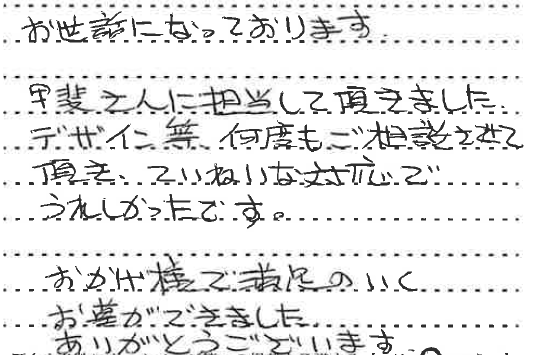 お世話になっております
甲斐さんに担当して頂きました
デザイン等、何度もご相談させて
頂き、ていねいな対応で
うれしかったです。
おかげ様で満足のいく
お墓ができました
ありがとうございます